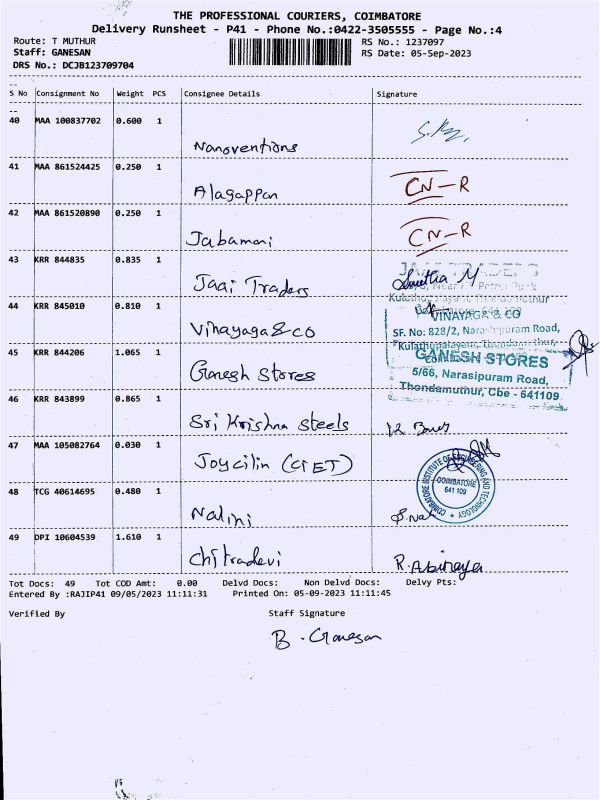 THE PROFESSIONAL COURIERS, COIMBATORE
Delivery Runsheet - P41 - Phone No.:0422-3505555 - Page No.:4
Route: T MUTHUR RS No.: 1237097
Staff: GANESAN RS Date: 05-Sep-2023
DRS No.: DCJB123709704
S No Consignment No Weight PCS Consignee Details Signature
40 MAA 100837702 0.600 1
Nanoventions
41 MAA 861524425 0.250 1
Alagappan CN-R
42 MAA 861520890 0.250 1
Jabamani CN-R
43 KRR 844835 0.835 1
JAAI TRADERS
Jaai Traders
44 KRR 845010 0.810 1
VINAYAGA & CO
Vinayaga & co SF. No: 828/2, Narasipuram Road,
Kulathupalayam, Thondamuthur,
45 KRR 844206 1.065 1
GANESH STORES
Ganesh Stores 5/66, Narasipuram Road,
Thondamuthur, Cbe - 641109
46 KRR 843899 0.865 1
Sri Krishna Steels
47 MAA 105082764 0.030 1
Joycilin (CIET) COIMBATORE INSTITUTE OF ENGINEERING AND TECHNOLOGY
COIMBATORE
641 109
48 TCG 40614695 0.480 1
Nalini
49 DPI 10604539 1.610 1
Chitradevi R. Abinaya
Tot Docs: 49 Tot COD Amt: 0.00 Delvd Docs: Non Delvd Docs: Delvy Pts:
Entered By :RAJIP41 09/05/2023 11:11:31 Printed On: 05-09-2023 11:11:45
Verified By Staff Signature
B. Ganesan